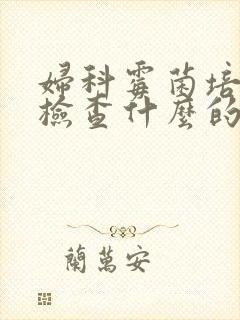 婦科霉菌培
檢查什麼的
蘭萬安